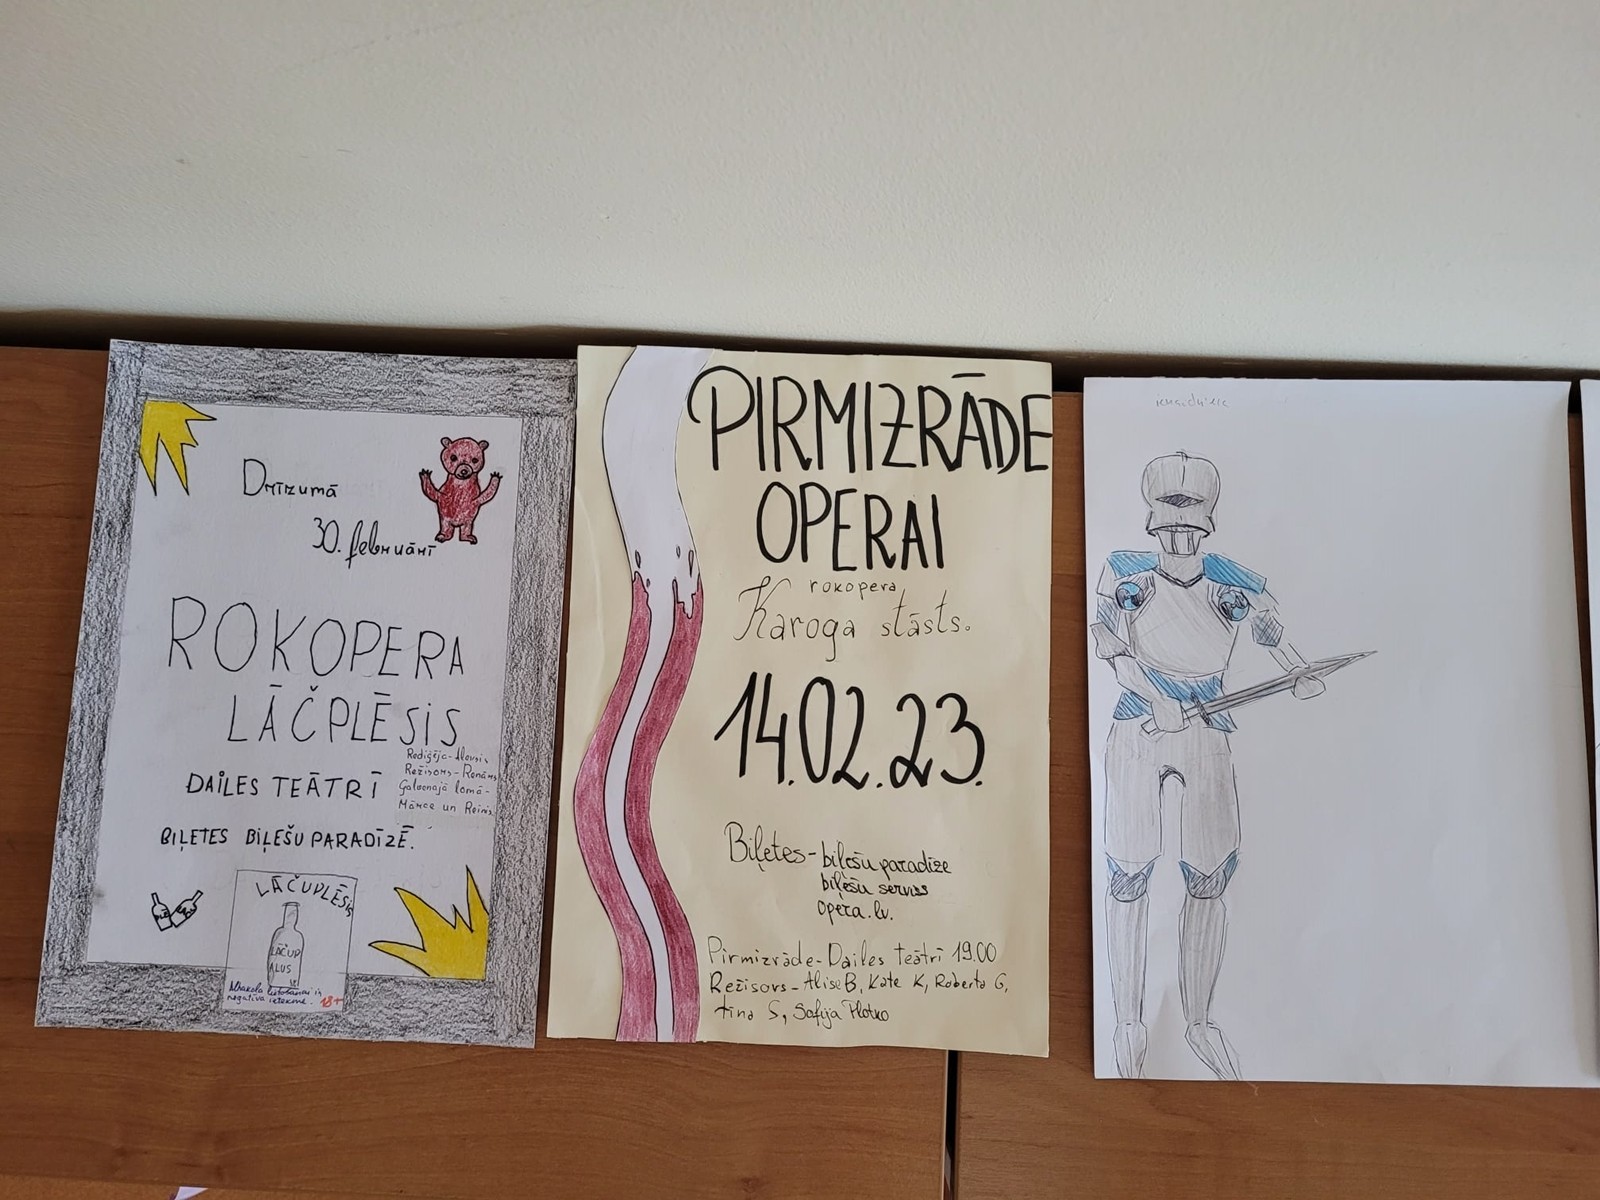 Drīzumā
30. februārī
ROKOPERA
LĀČPLĒSIS
Režisors - Renārs
Galvenajā lomā -
Mārce un Reinis
DAILES TEĀTRĪ
BIĻETES BIĻEŠU PARADĪZĒ.
LĀČUPLĒSIS
LĀČUP
ALUS
Alkohola lietošanai ir
negatīva ietekme. 18+
PIRMIZRĀDE
OPERAI
rokopera
Karoga stāsts.
14.02.23.
Biļetes - biļešu paradīze
biļešu serviss
opera.lv.
Pirmizrāde - Dailes teātrī 19.00
Režisors - Alise B, Kate K, Roberta G,
tina S, Sofija